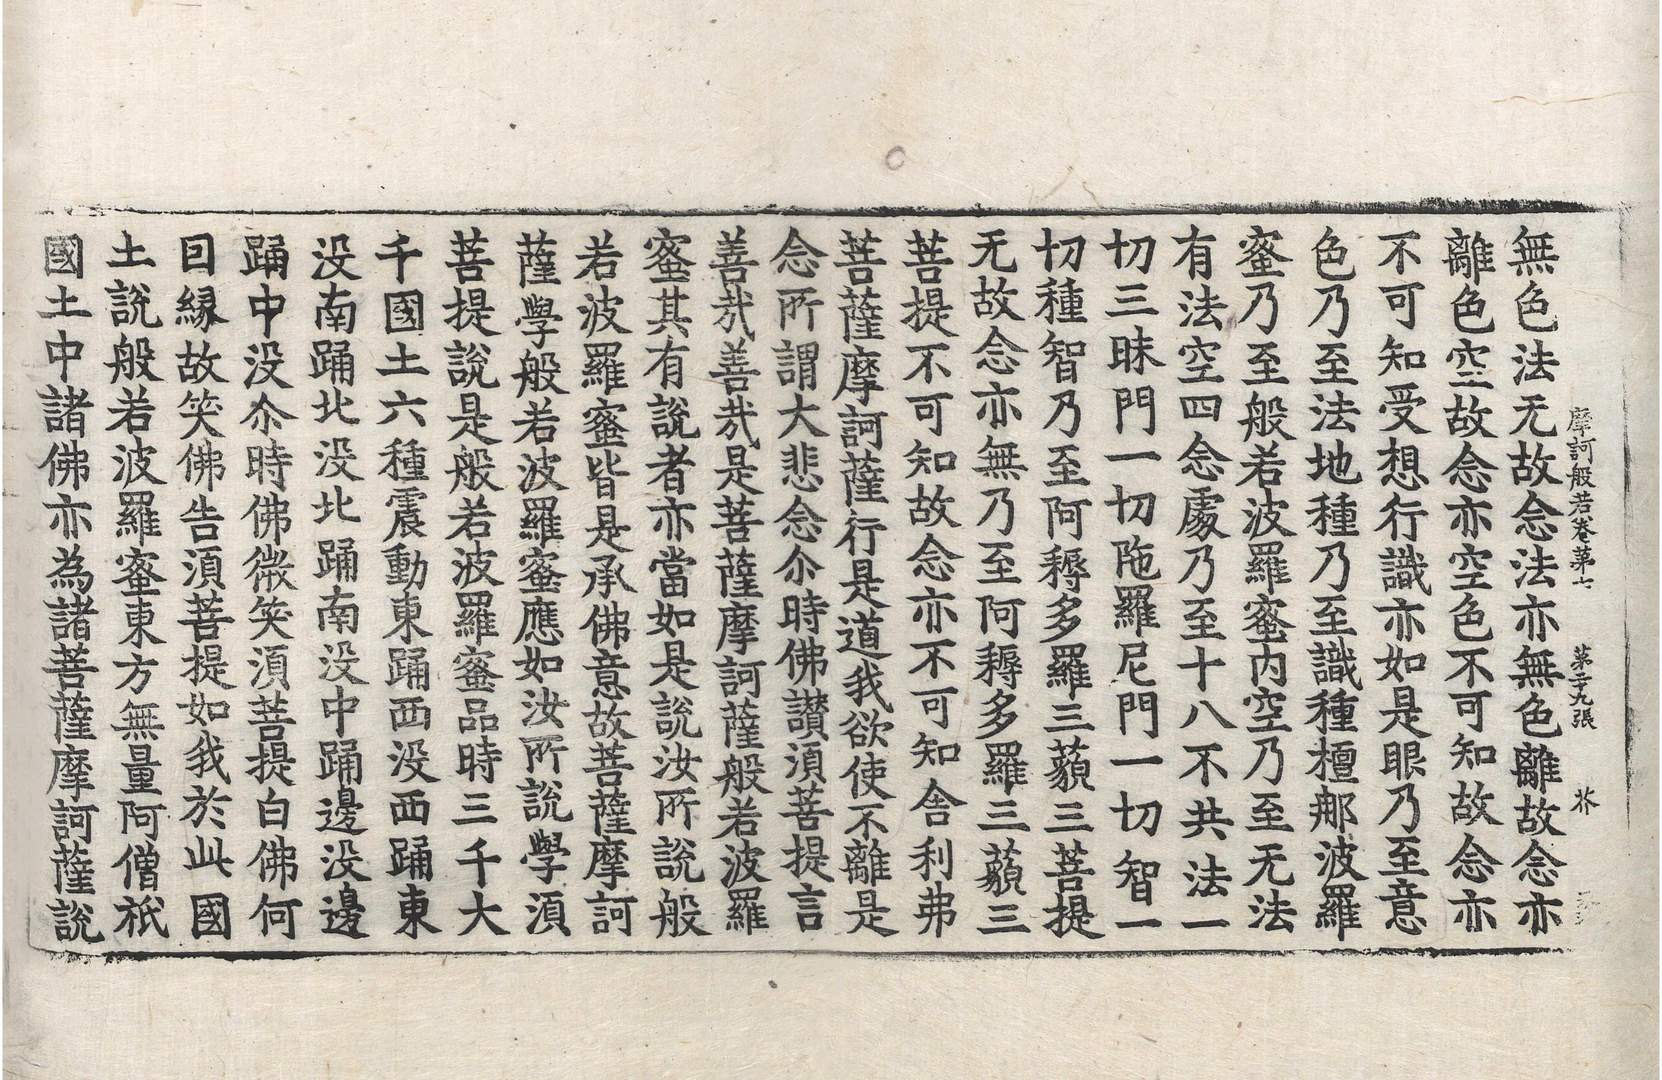 摩訶般若卷第七 第二十九張 芥
無色法无故念法亦無色離故念亦
離色空故念亦空色不可知故念亦
不可知受想行識亦如是眼乃至意
色乃至法地種乃至識種檀那波羅
蜜乃至般若波羅蜜内空乃至无法
有法空四念處乃至十八不共法一
切三昧門一切陁羅尼門一切智一
切種智乃至阿耨多羅三藐三菩提
无故念亦無乃至阿耨多羅三藐三
菩提不可知故念亦不可知舍利弗
菩薩摩訶薩行是道我欲使不離是
念所謂大悲念尒時佛讃湏菩提言
善㢤善㢤是菩薩摩訶薩般若波羅
蜜其有說者亦當如是說汝所說般
若波羅蜜皆是承佛意故菩薩摩訶
薩學般若波羅蜜應如汝所說學湏
菩提說是般若波羅蜜品時三千大
千國土六種震動東踊西没西踊東
没南踊北没北踊南没中踊邊没邊
踊中没尒時佛微笑湏菩提白佛何
因縁故笑佛告湏菩提如我於此國
土說般若波羅蜜東方無量阿僧祇
國土中諸佛亦為諸菩薩摩訶薩說